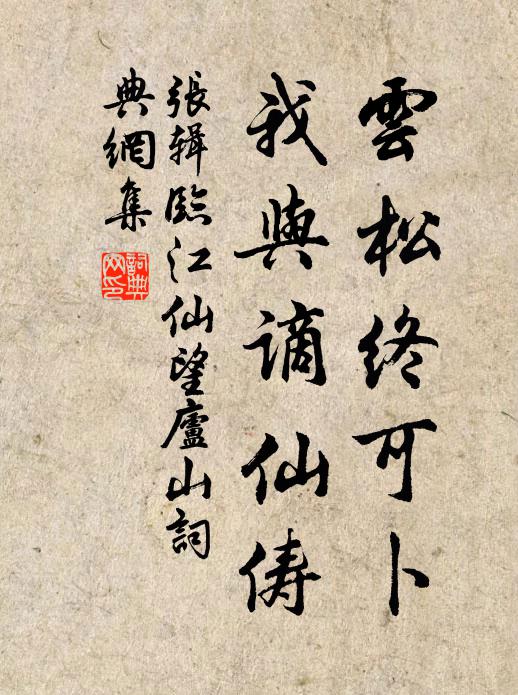 雲松終可卜
我與謫仙儔
張輯臨江仙望廬山詞
典網集
詞典网印